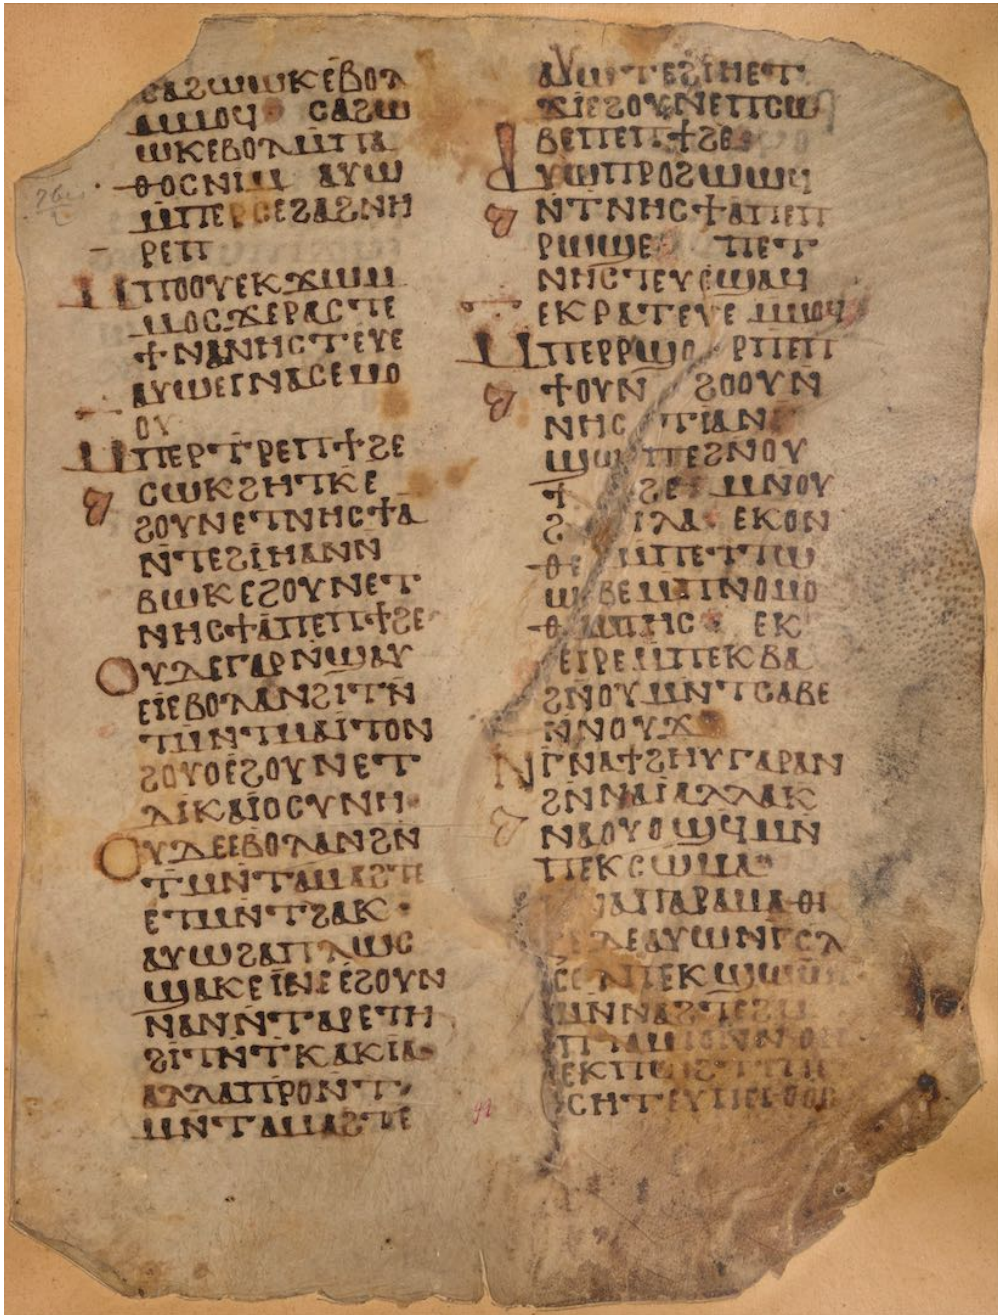 ⲥⲁϩⲱⲱⲕⲉⲃⲟⲗ
ⲙⲙⲟϥ ⲥⲁϩⲱ
ⲱⲕⲉⲃⲟⲗⲙⲡⲁ
ⲑⲟⲥⲛⲓⲙ ⲁⲩⲱ
ⲙⲡⲉⲣⲥⲉϩⲁϩⲛⲏ
ⲣⲉⲡ
ⲙⲡⲟⲟⲩⲉⲕϫⲱⲙ
ⲙⲟⲥϫⲉⲣⲁⲥⲧⲉ
ϯⲛⲁⲛⲏⲥⲧⲉⲩⲉ
ⲁⲩⲱⲉⲓⲛⲁⲥⲉⲙⲟ
ⲟⲩ
ⲙⲡⲉⲣⲧⲣⲉⲡϯϩⲉ
ⲥⲱⲕϩⲏⲧⲕⲉ
ϩⲟⲩⲛⲉⲧⲛⲏⲥϯⲁ
ⲛⲧⲉϩⲓⲏⲁⲛⲛ
ⲃⲱⲕⲉϩⲟⲩⲛⲉⲧ
ⲛⲏⲥϯⲁⲡⲉⲡϯϩⲉ
ⲟⲩⲇⲉⲅⲁⲣⲛϣⲁⲩ
ⲉⲓⲉⲃⲟⲗⲁⲛϩⲓⲧⲛ
ⲧⲙⲛⲧⲙⲁⲓⲧⲟⲛ
ϩⲟⲩⲟⲉϩⲟⲩⲛⲉⲧ
ⲇⲓⲕⲁⲓⲟⲥⲩⲛⲏ
ⲟⲩⲇⲉⲉⲃⲟⲗⲁⲛϩⲛ
ⲧⲙⲛⲧⲁⲙⲁϩⲧⲉ
ⲉⲧⲙⲛⲧϩⲁⲕ
ⲁⲩⲱϩⲁⲡⲗⲱⲥ
ϣⲁⲕⲉⲓⲛⲉⲉϩⲟⲩⲛ
ⲛⲁⲛⲛⲧⲁⲣⲉⲧⲏ
ϩⲓⲧⲛⲧⲕⲁⲕⲓⲁ
ⲁⲗⲗⲁⲡⲣⲟⲛⲧ
ⲙⲛⲧⲁⲙⲁϩⲧⲉ
ⲁⲩⲱⲧⲉϩⲓⲏⲉⲧ
ϫⲓⲉϩⲟⲩⲛⲉⲡⲥⲱ
ⲃⲉⲡⲉⲡϯϩⲉ
ⲁⲩⲱⲡⲣⲟϩⲱⲱϥ
ⲛⲧⲛⲏⲥϯⲁⲡⲉⲡ
ⲣⲱϣⲉ ⲡⲉⲧ
ⲛⲏⲥⲧⲉⲩⲉϣⲁϥ
ⲉⲕⲣⲁⲧⲉⲩⲉⲙⲙⲟϥ
ⲙⲡⲉⲣⲣϣⲟⲣⲡⲉⲡ
ϯⲟⲩⲛ ϩⲟⲟⲩⲛ
ⲛⲏⲥⲧⲓⲁⲛ
ϣⲱⲡⲉϩⲛⲟⲩ
ϯ ϩⲉ ⲙⲛⲟⲩ
ⲉⲕⲟⲛ
ⲑⲉ ⲙⲡⲉⲧⲧⲱ
ⲱⲃⲉⲙⲡⲛⲟⲙⲟ
ⲑⲙⲡⲏⲥ ⲉⲕ
ⲉⲓⲣⲉⲙⲡⲉⲕⲃⲁ
ϩⲛⲟⲩⲙⲛⲧⲥⲁⲃⲉ
ⲛⲛⲟⲩϫ
ⲛⲅⲛⲁϯϩⲏⲩⲅⲁⲣⲁⲛ
ϩⲛⲛⲁⲓⲁⲗⲗⲁⲕ
ⲛⲁⲟⲩⲟϣϥⲙⲛ
ⲡⲉⲕⲥⲱⲙⲁ
ⲁⲡⲁⲣⲁⲙⲁⲑⲓ
ⲗⲉⲁⲩⲱⲛⲅⲥⲗ
ⲥⲉⲗⲡⲉⲕϣⲱⲱ
ⲙⲛⲛⲁϩⲧⲉϩⲙ
ⲥⲏⲧⲉⲩⲡⲉⲓ